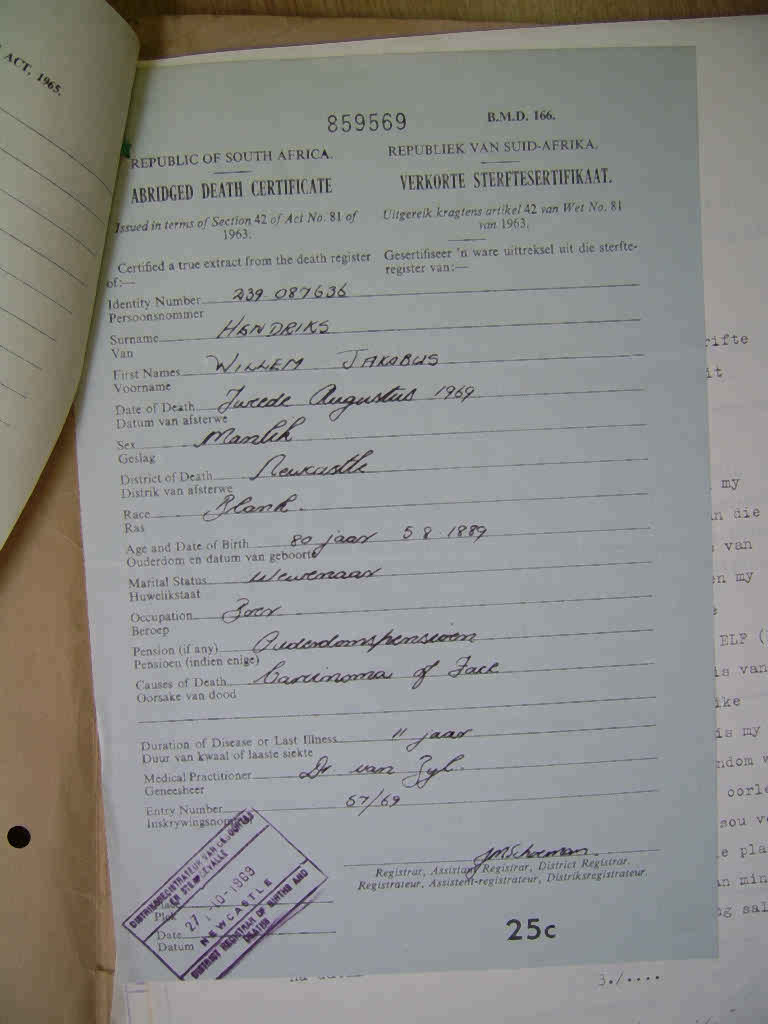 ACT, 1965.
859569
B.M.D. 166.
REPUBLIC OF SOUTH AFRICA.
REPUBLIEK VAN SUID-AFRIKA.
ABRIDGED DEATH CERTIFICATE
VERKORTE STERFTESERTIFIKAAT.
Issued in terms of Section 42 of Act No. 81 of
1963.
Uitgereik kragtens artikel 42 van Wet No. 81
van 1963.
Certified a true extract from the death register
of:—
Gesertifiseer 'n ware uittreksel uit die sterfte-
register van:—
Identity Number 239 087636
Persoonsnommer
Surname HENDRIKS
Van
First Names WILLEM JAKOBUS
Voorname
Date of Death Tweede Augustus 1969
Datum van afsterwe
Sex Manlik
Geslag
District of Death Newcastle
Distrik van afsterwe
Race Blank.
Ras
Age and Date of Birth 80 jaar 5 8 1889
Ouderdom en datum van geboorte
Marital Status Wewenaar
Huwelikstaat
Occupation Boer
Beroep
Pension (if any) Ouderdomspensioen
Pensioen (indien enige)
Causes of Death Carcinoma of Face
Oorsake van dood
Duration of Disease or Last Illness 11 jaar
Duur van kwaal of laaste siekte
Medical Practitioner Dr van Zyl.
Geneesheer
Entry Number 57/69
Inskrywingsnommer
JMSchoeman
Registrar, Assistant Registrar, District Registrar.
Registrateur, Assistent-registrateur, Distriksregistrateur.
DISTRIKSREGISTRATEUR VAN GEBOORTES
EN STERFGEVALLE
27 -10- 1969
NEWCASTLE
DISTRICT REGISTRAR OF BIRTHS AND
DEATHS
Plek
Date
Datum
25c
rifte
it
my
n die
van
en my
ELF
is van
ike
is my
ndom
oorle
sou
e pla
n min
g sal
3./....